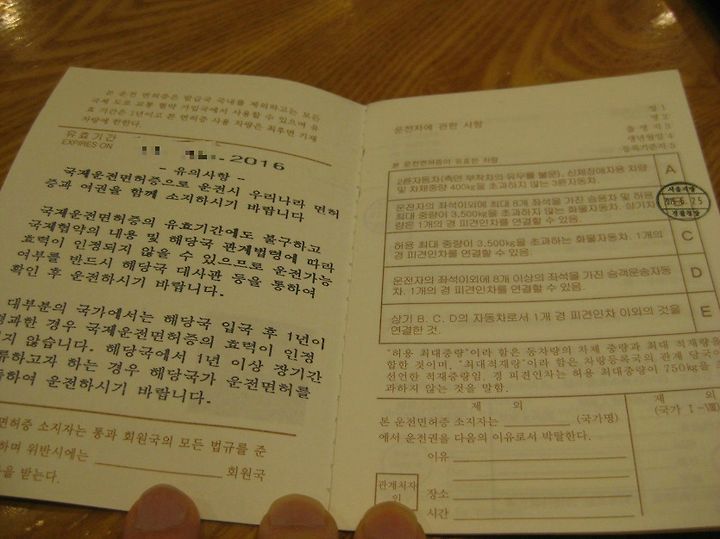 본 운전 면허증은 발급국 국내를 제외하고는 모든
국제 도로 교통 협약 가입국에서 사용할 수 있으며 유
효 기간은 1년이고 본 면허증 사용 차량은 최후면 기재
차량에 한한다.
유효기간
EXPIRES ON 2016
- 유의사항 -
국제운전면허증으로 운전시 우리나라 면허
증과 여권을 함께 소지하시기 바랍니다
국제운전면허증의 유효기간에도 불구하고
국제협약의 내용 및 해당국 관계법령에 따라
효력이 인정되지 않을 수 있으므로 운전가능
여부를 반드시 해당국 대사관 등을 통하여
확인 후 운전하시기 바랍니다.
대부분의 국가에서는 해당국 입국 후 1년이
경과한 경우 국제운전면허증의 효력이 인정
지 않습니다. 해당국에서 1년 이상 장기간
류하고자 하는 경우 해당국가 운전면허를
하여 운전하시기 바랍니다.
면허증 소지자는 통과 회원국의 모든 법규를 준
하며 위반시에는 회원국
을 받는다.
운전자에 관한 사항
성 1
명 2
출생지 3
생년월일 4
등록기준지 5
본 운전면허증의 유효한 차량
2륜자동차(측면 부착차의 유무를 불문), 신체장애자용 차량
및 차체중량 400kg을 초과하지 않는 3륜자동차.
A
운전자의 좌석이외에 최대 8개 좌석을 가진 승용차 및 허용
최대 중량이 3,500kg을 초과하지 않는 화물자동차. 상기차
량은 1개의 경 피견인차를 연결할 수 있음.
6. 25
허용 최대 중량이 3,500kg을 초과하는 화물자동차. 1개의
경 피견인차를 연결할 수 있음.
C
운전자의 좌석이외에 8개 이상의 좌석을 가진 승객운송자동
차. 1개의 경 피견인차를 연결할 수 있음.
D
상기 B. C. D의 자동차로서 1개 경 피견인차 이외의 것을
연결한 것.
E
"허용 최대중량"이라 함은 동차량의 차체 중량과 최대 적재량을
합한 것이며, "최대적재량"이라 함은 차량등록국의 관계 당국이
선언한 적재중량임, 경 피견인차는 허용 최대중량이 750kg을
과하지 않는 것을 말함.
제 외
본 운전면허증 소지자는 (국가명)
에서 운전권을 다음의 이유로서 박탈한다.
이유
관계처자
인
장소
시간
제 외
(국가 I - VIII